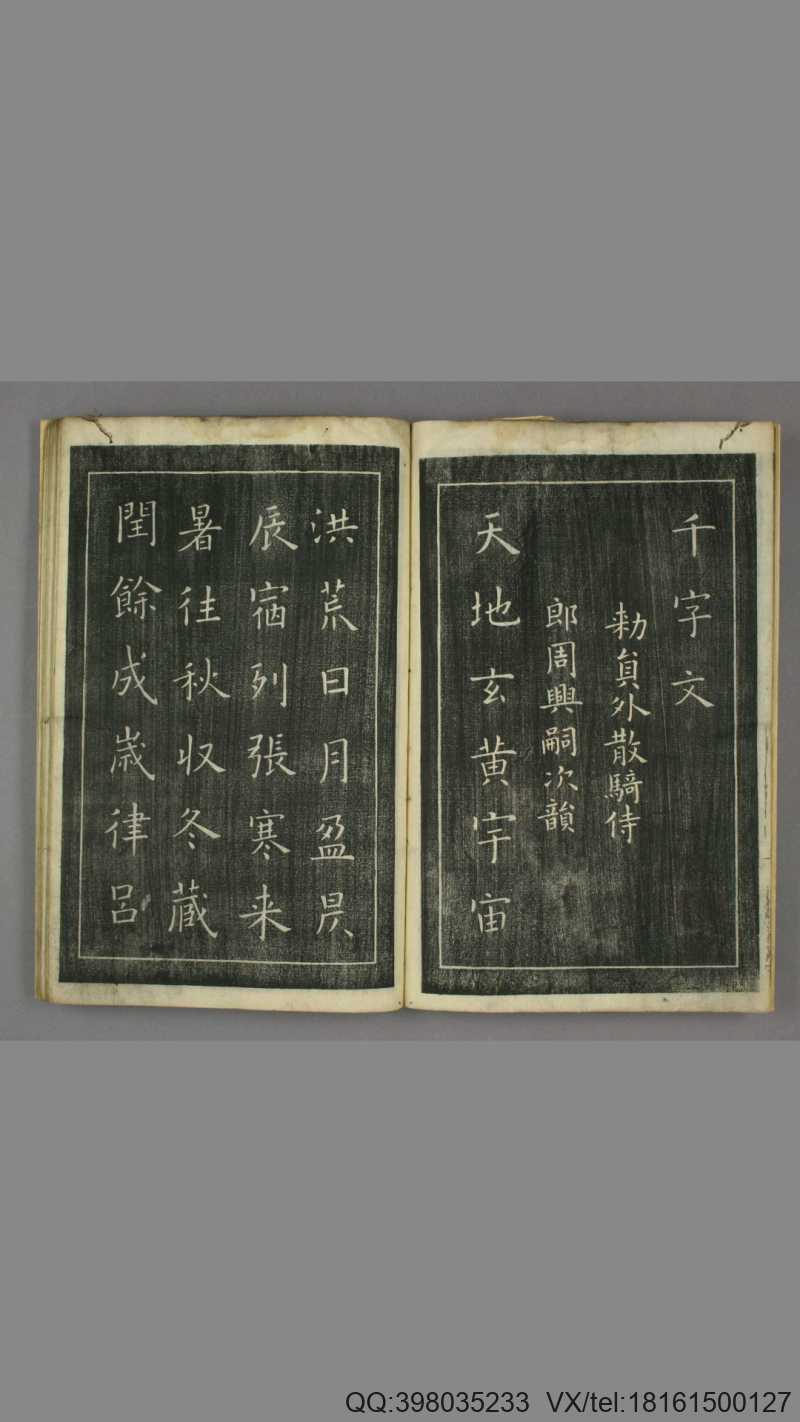 千字文
勅貟外散騎侍
郎周興嗣次韻
天地玄黄宇宙
洪荒日月盈昃
辰宿列張寒来
暑往秋収冬蔵
閏餘成歳律呂
QQ:398035233 VX/tel:18161500127